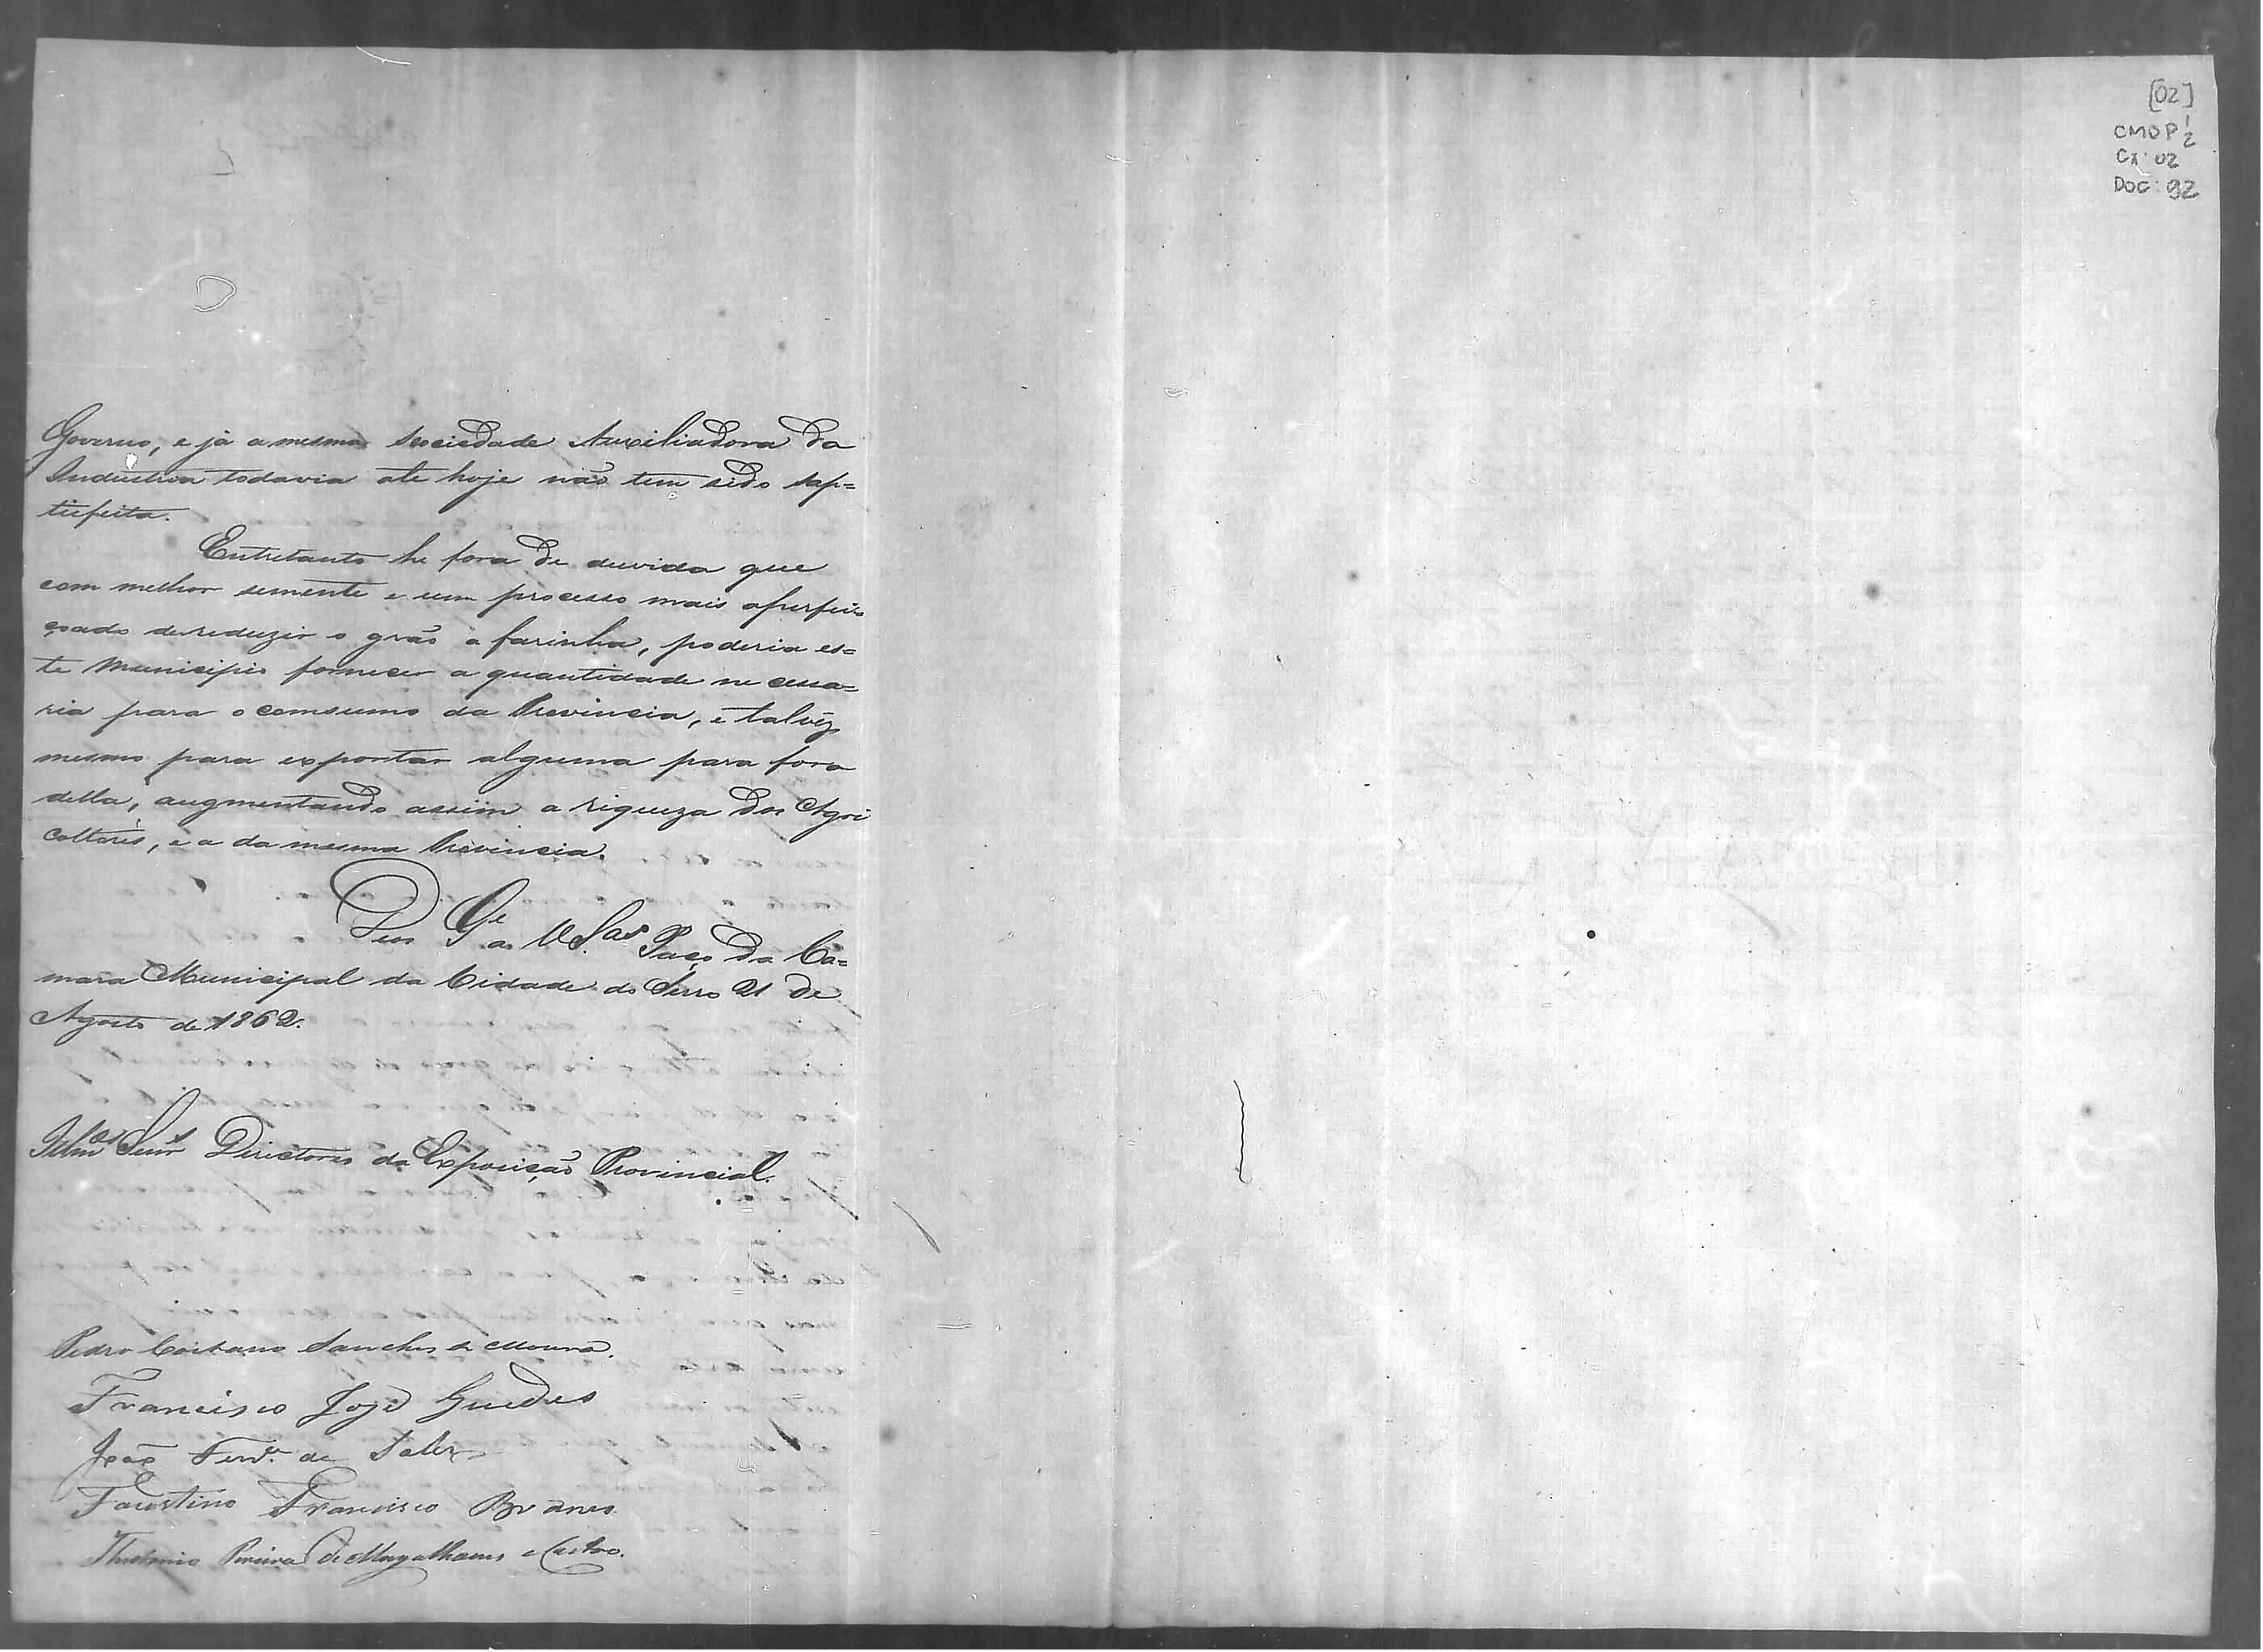 [02]
CMOP 1/2
Cx: 02
DOC: 92
Governo, e já a mesma Sociedade Auxiliadora da
Industria todavia ate hoje não tem sido sap=
tisfeita.
Entretanto he fora de duvida que
com melhor semente e um processo mais aperfei
çoado de reduzir o grão a farinha, poderia es=
te Municipio fornecer a quantidade necessa=
ria para o comsumo da Provincia, e talvez
mesmo para exportar alguma para fora
della, augmentando assim a riqueza dos Agri
coltores, e a da mesma Provincia.
Deos Ge a V.Sas Paço da Ca=
mara Municipal da Cidade do Serro 21 de
Agosto de 1862.
Illmos Snrs Directores da Exposição Provincial.
Pedro Caetano Sanches de Moura.
Francisco José Guedes
João Ferra. de Salles
Faustino Francisco Branco
Theotonio Pereira de Magalhaens e Castro.